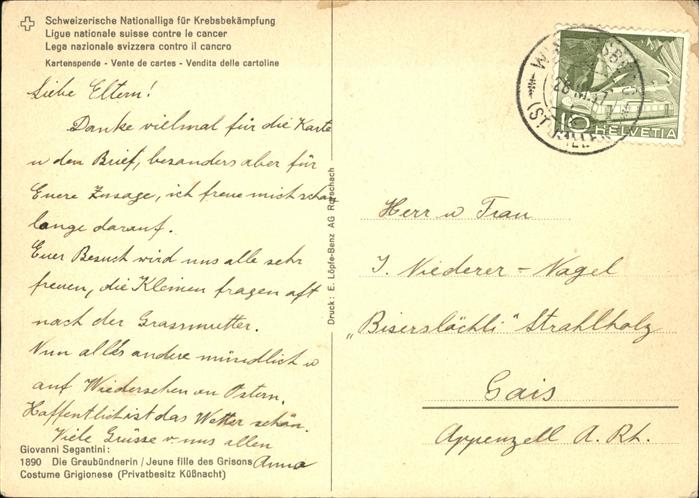 Schweizerische Nationalliga für Krebsbekämpfung
Ligue nationale suisse contre le cancer
Lega nazionale svizzera contro il cancro
Kartenspende - Vente de cartes - Vendita delle cartoline
Liebe Eltern!
Danke vielmal für die Karte
u den Brief, besonders aber für
Euere Zusage, ich freue mich schon
lange darauf.
Euer Besuch wird uns alle sehr
freuen, die Kleinen fragen oft
nach der Grossmutter.
Nun alles andere mündlich u
auf Wiedersehen an Ostern.
Hoffentlich ist das Wetter schön.
Viele Grüsse v. uns allen
Anna
Giovanni Segantini:
1890 Die Graubündnerin / Jeune fille des Grisons
Costume Grigionese (Privatbesitz Küßnacht)
Druck: E. Löpfe-Benz AG Rorschach
HELVETIA
Herr u Frau
J. Niederer - Nagel
"Biserslöchli" Strahlholz
Gais
Appenzell A. Rh.